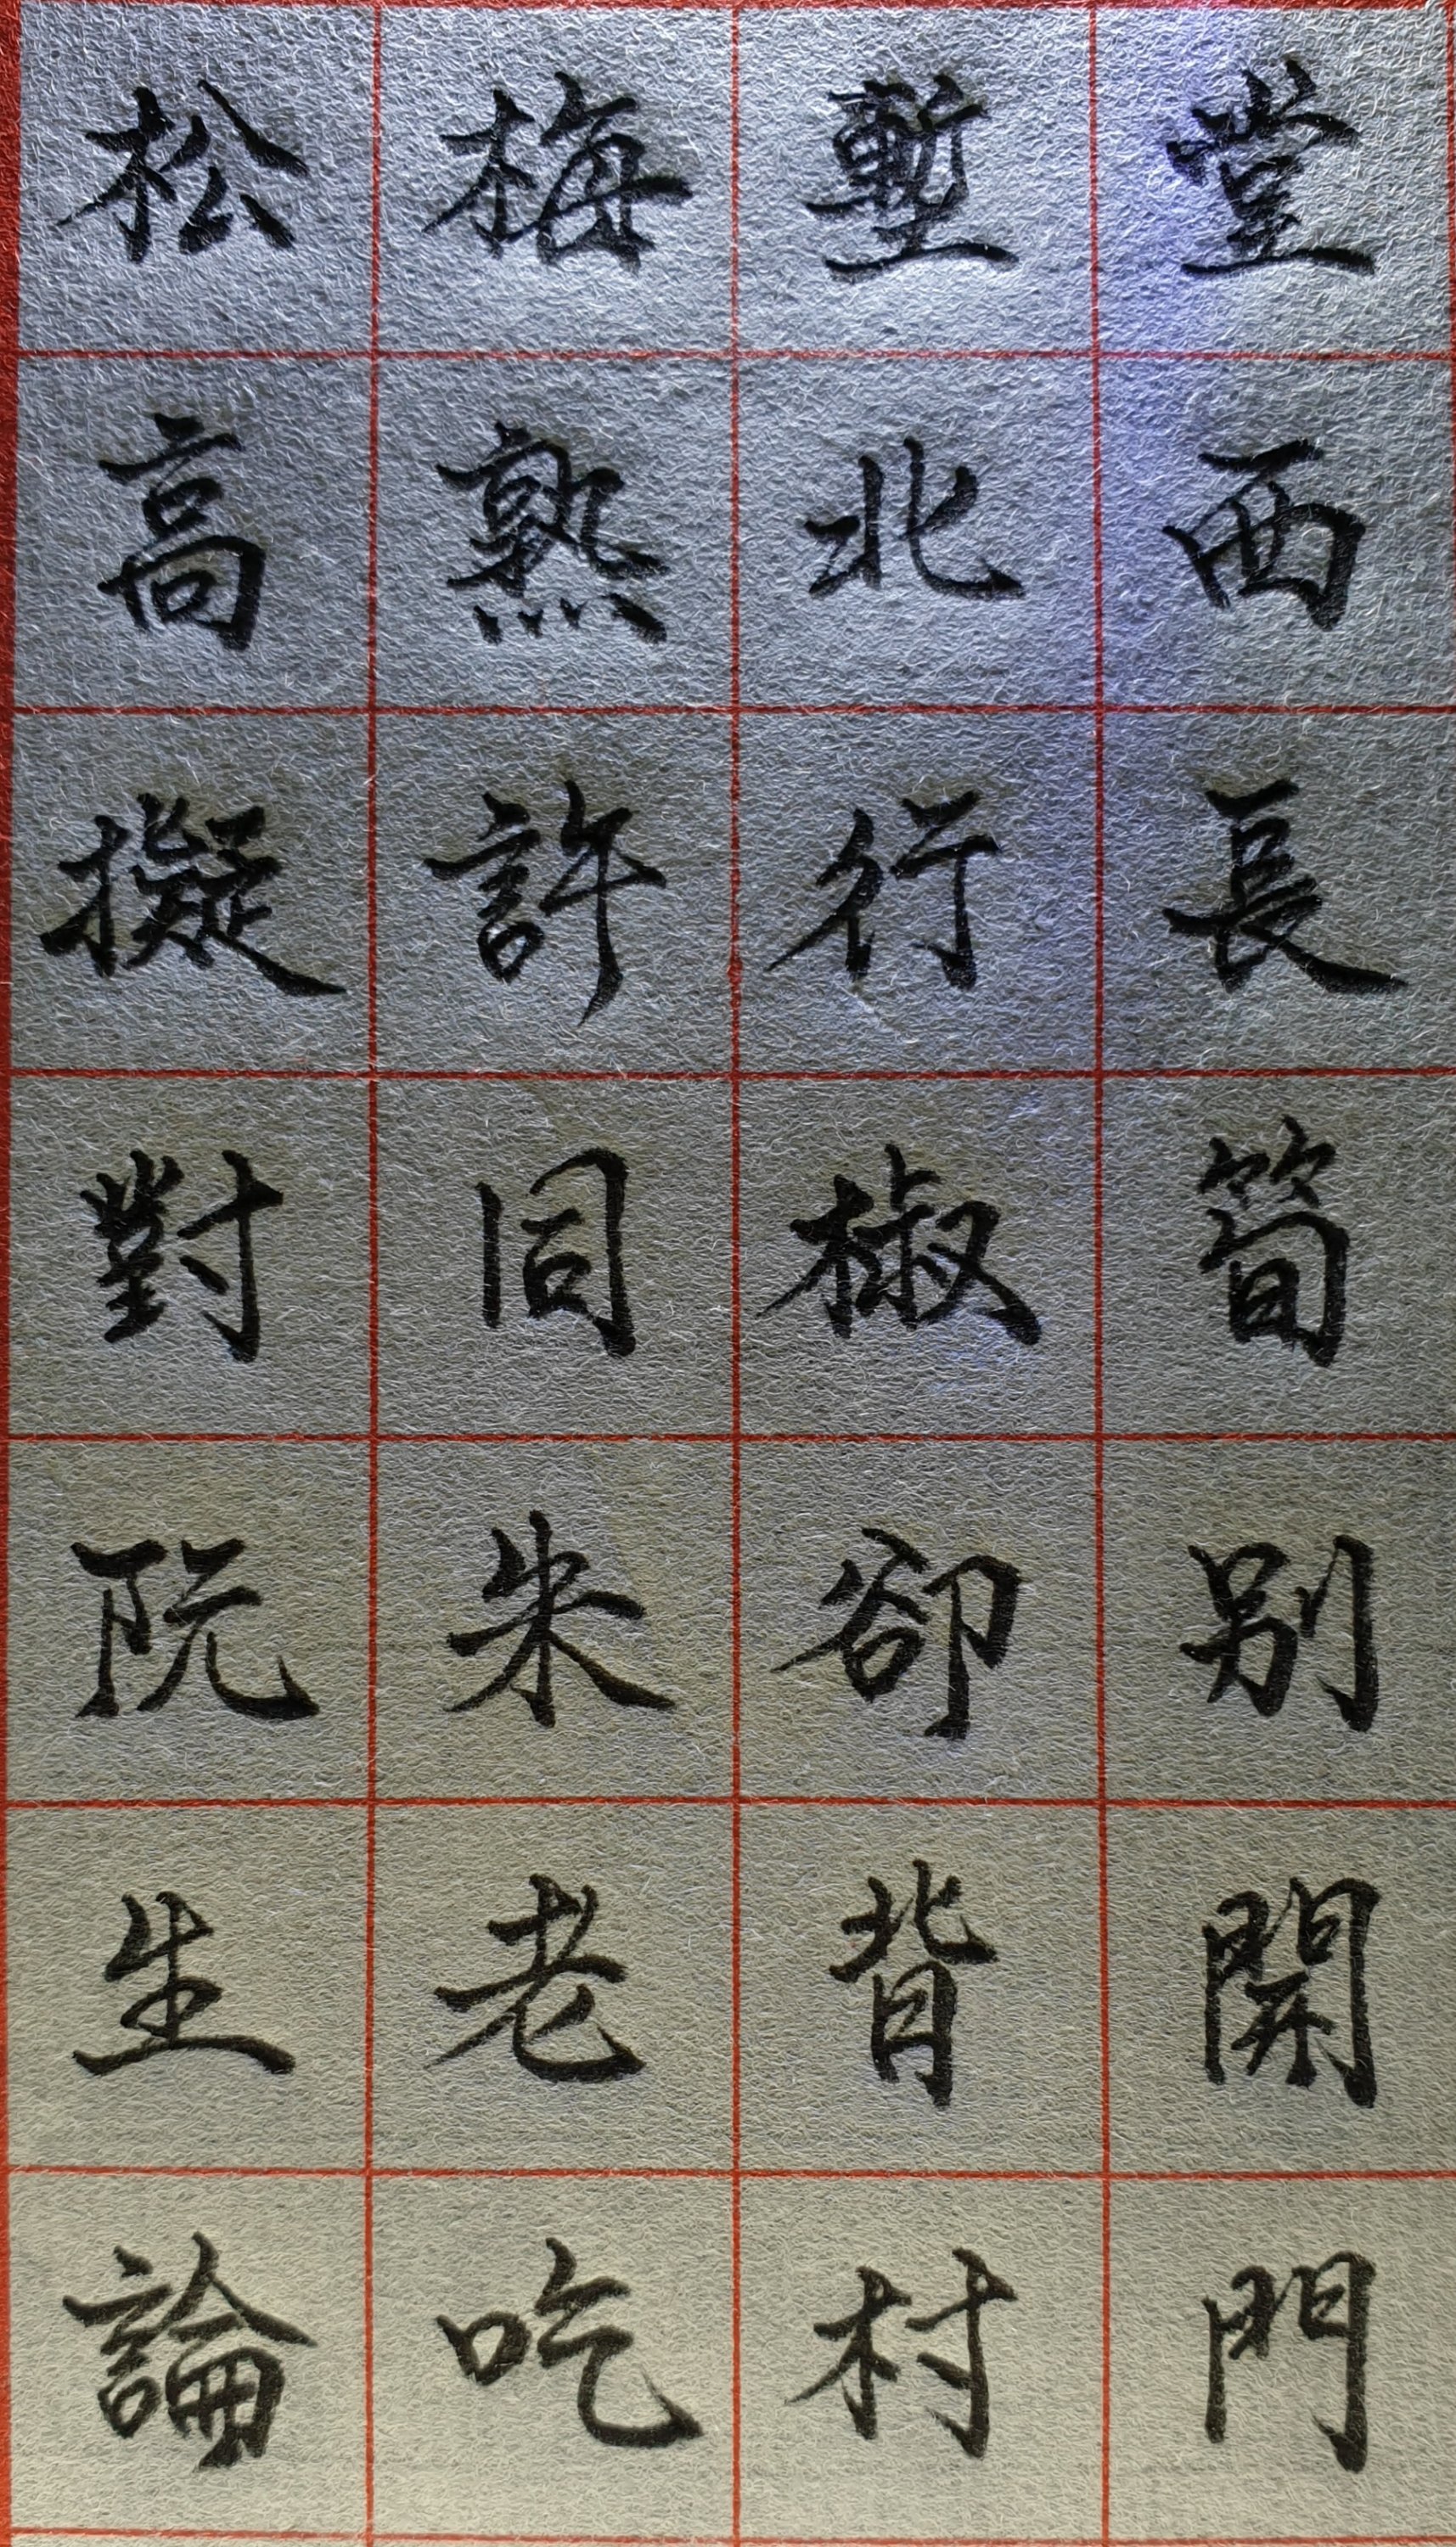 堂西長筍別開門
塹北行椒卻背村
梅熟許同朱老吃
松高擬對阮生論